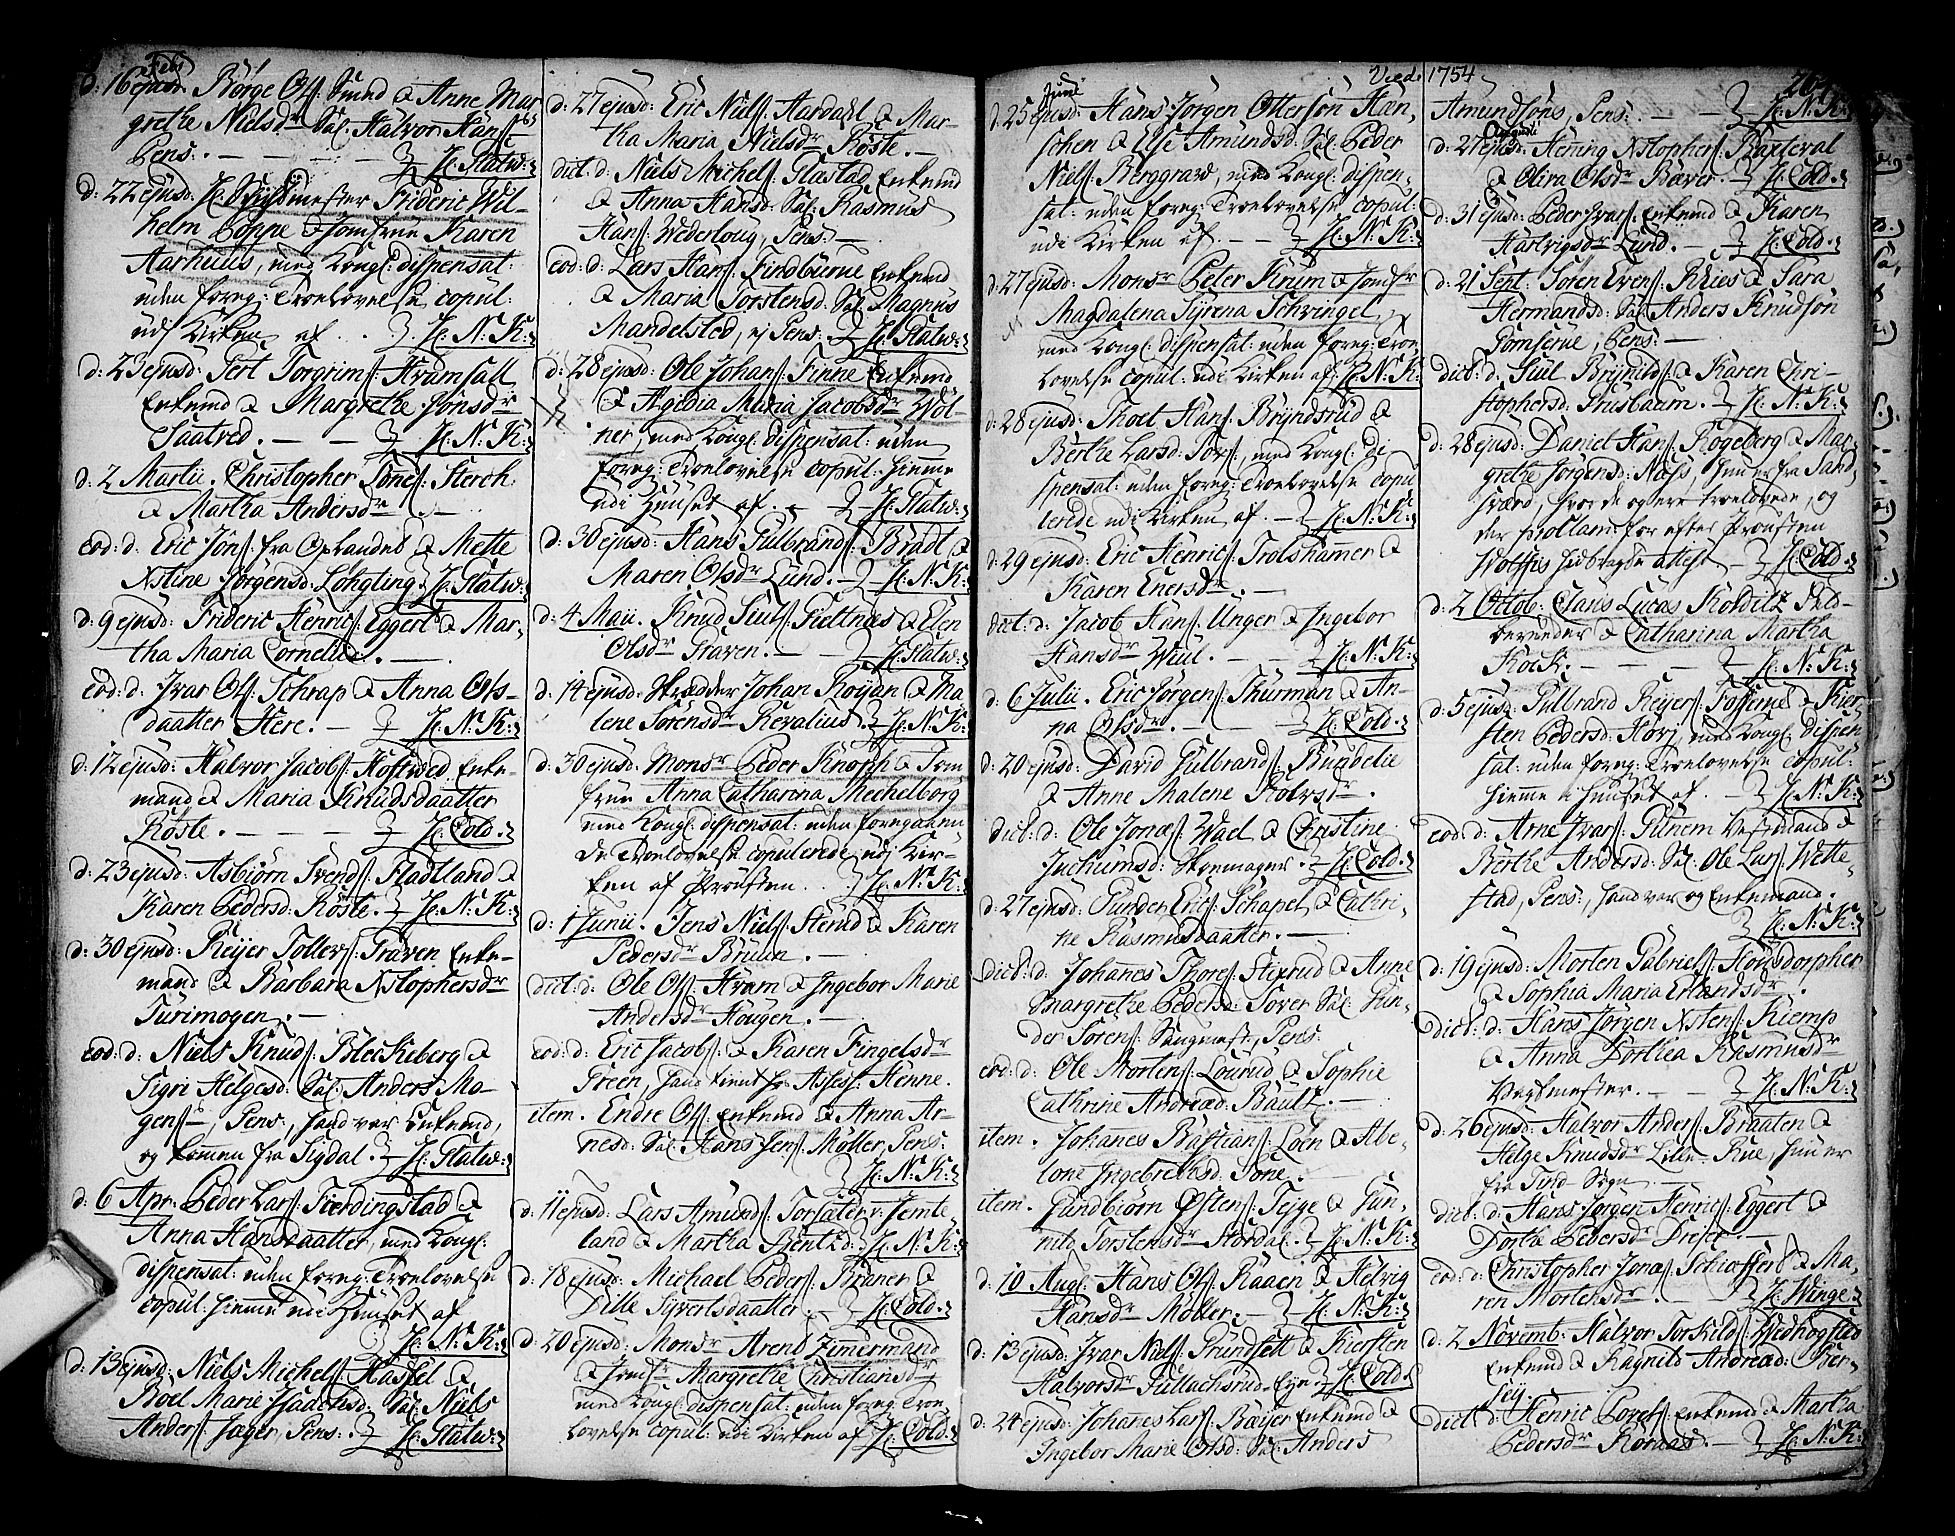 Feb
d: 16 ejusd: Børge Ols: Svend & Anne Mar-
grethe Nielsdr Sal: Halvor Hans:
Pens: — — — Hr: Statw:
d: 22 ejusd: Hr. Frideric Wil-
helm Poppe & Jomfrue Karen
Aarhuus, med Kongl: dispensat:
uden foreg: Troelovelse copul:
udj Kirken af . . Hr. N: K:
d: 23 ejusd: Gert Torgrims: Framsatt
Enkemd & Margrethe Jonsdr
Saatved. — — Hr. N: K:
d: 2 Martii. Christopher Jones: Sterch
& Martha Andersdr . —
eod: d: Eric Jons: fra Oplandet & Mette
Xstine Jørgensd: Løhgting. Hr: Statw:
d: 9 ejusd: Frideric Henrics: Eggert & Mar-
tha Maria Cornelii. —
eod: d: Ivar Ols: Schrap & Anna Ols-
daatter Here. — Hr. N: K:
d: 12 ejusd: Halvor Jacobs: Hoftved Enke-
mand & Maria Knudsdaatter
Røste. — — — Hr: Cold:
d: 23 ejusd: Asbiørn Svends: Fladtland &
Karen Pedersd: Røste. — Hr. N: K:
d: 30 ejusd: Reijer Tollevs: Graven Enke-
mand & Barbara Xstophersdr
Turimogen. —
eod: d: Niels Knuds: Bleckeberg &
Sigri Helgesd: Sal: Anders Mo-
gens:, Pens:, hand var Enkemd,
og kommen fra Sigdal. Hr: Statw:
d: 6 Apr: Peder Lars: Fierdingstad &
Anna Hansdaatter, med Kongl:
dispensat: uden foreg: Troelovelse
copul: hiemme udi Huuset af
Hr. N: K:
d: 13 ejusd: Niels Michels: Hassel &
Boel Marie Isaachsd: Sal: Niels
Anders: Jager, Pens: . Hr: Statw:
d: 27 ejusd: Eric Niels: Aardahl & Mar-
tha Maria Nielsdr Røste. —
dict: d: Niels Michels: Flastad Enkemd
& Anna Hansd: Sal: Rasmus
Hans: Wederloug, Pens: —
eod: d: Lars Hans: Findbørne Enkemd
& Maria Torstensd: Sal: Magnus
Mandelsted, ej Pens: Hr: Statw:
d: 28 ejusd: Ole Johans: Finne Enkemd
& Agedia Maria Jacobsdr Wol-
ner, med Kongl: dispensat: uden
foreg: Troelovelse copul: hiemme
udi Huuset af. — Hr: Statw:
d: 30 ejusd: Hans Gulbrands: Bradt &
Maren Olsdr Lund. — Hr. N: K:
d: 4 Maii. Knud Siuls: Fieltnæs & Elen
Olsdr Graven. — Hr: Statw:
d: 14 ejusd: Skredder Johan Roijan & Ma
lene Sørensdr Revalius. Hr. N: K:
d: 30 ejusd: Monsr Peder Knoph & Jom
frue Anna Catharina Mechelborg
med Kongl: dispensat: uden foregaaen-
de Troelovelse copulerede udj Kir-
ken af Provsten. . . Hr. N: K:
d: 1 Junii. Jens Niels: Sterud & Karen
Pedersdr Bruun. —
dict: d: Ole Ols: Hvam & Ingebor Marie
Andersdr Hougen. —
eod: d: Eric Jacobs: & Karen Fingelsdr
Green, hand tient hr: Assess: Henne.
item. Endre Ols: Enkemd & Anna Ar-
nesd: Sal: Hans Jens: Møller, Pens:
Hr. N: K:
d: 11 ejusd: Lars Amunds: Torsäter v: Jemte-
land & Martha Bentzd: Hr. N: K:
d: 18 ejusd: Michael Peders: Bræner &
Dille Syvertsdaatter. — Hr: Cold:
d: 20 ejusd: Monsr Arend Zimermand
& Jomfr Margrethe Christiansdr
med Kongl: dispensat: uden foreg: Troe-
lovelse copul: udi Kirken af Hr: Cold:
Vied: 1754
Junii
d: 25 ejusd: Hans Jørgen Otterson Han-
schen & Else Amundsd: Sal: Peder
Niels: Berggrav, med Kongl: dispen-
sat: uden foreg: Troelovelse copul:
udi Kirken af. — Hr. N: K:
d: 27 ejusd: Monsr Peter Krum & Jomfr
Magdalena Syrena Schvingel,
med Kongl: dispensat: uden foreg: Troe
lovelse copul: udi Kirken af: Hr. N: K:
d: 28 ejusd: Thoel Hans: Bryndsrud &
Berthe Larsd: Fors:, med Kongl: di
spensat: uden foreg: Troelovelse copu
lerede udi Kirken af. — Hr. N: K:
d: 29 ejusd: Eric Henrics: Trolshammer &
Karen Enersdr. —
dict: d: Jacob Hans: Unger & Ingebor
Hansdr Wiul. — Hr. N: K:
d: 6 Julii. Eric Jørgens: Thurman & An-
na Olsdr. — Hr: Cold:
d: 20 ejusd: David Gulbrands: Bundelie
& Anne Malene Rolvsdr.
dict: d: Ole Jonæs: Wael & Christine
Jochumsd: Skoemager. Hr: Cold:
d: 27 ejusd: Gunder Erics: Schapet & Cathri-
ne Rasmusdaatter. —
dict: d: Johanes Thores: Stixrud & Anne
Margrethe Pedersd: Sover Sal: Gun-
der Sorens: , Pens:
eod: d: Ole Mortens: Lourud & Sophie
Cathrine Andreæd: Bault. —
item. Johanes Bastians: Loen & Abe-
lone Ingebrethsd: Sone. —
item. Gundbiørn Østens: Teige & Gun-
nild Torstensdr Stordal. Hr. N: K:
d: 10 Aug: Hans Ols: Raaen & Helvig
Hansdr Møller. — Hr. N: K:
d: 13 ejusd: Ivar Niels: Grundsett & Kiersten
Halvorsdr Gullachsrud-Eye Hr: Cold:
d: 24 ejusd: Johanes Lars: Bæijer Enkemd &
Ingebor Marie Olsd: Sal: Anders
Amundsøns, Pens: — Hr. N: K:
Augusti
d: 27 ejusd: Henning Xstophers: Baxteval
& Olira Olsdr Bæver. — Hr: Cold:
d: 31 ejusd: Peder Ivars: Enkemd & Karen
Hartvigsdr Lund. — Hr: Cold:
d: 21 Sept: Søren Evens: Rkies & Sara
Hermandsd: Sal: Anders Knudsøn
Gomserue, Pens: —
dict: d: Siul Brynilds: & Karen Chri-
stophersd: Gruusbaum. — Hr. N: K:
d: 28 ejusd: Daniel Hans: Rogeberg & Mar-
grethe Jørgensd: Næss, hun er fra Sand-
sværd, hvor de og ere troelovede, og
der proclam: for efter Provsten
Wolffs hidbragde attest — Hr: Cold:
d: 2 Octob: Claus Lucas Korditz Feld-
bereuder & Catharina Martha
Kock. — Hr. N: K:
d: 5 ejusd: Gulbrand Reijers: Fosserne & Kier-
sten Pedersd: Høvj, med Kongl: dispen
sat: uden foreg: Troelovelse copul:
hiemme i huuset af. — Hr. N: K:
eod: d: Arne Ivars: Gunem &
Berthe Andersd: Sal: Ole Lars: Wette-
stad, Pens:, hand var og Enkemand.
Hr. N: K:
d: 19 ejusd: Morten Gabriels: Hønsdorpher
& Sophia Maria Erlandsdr.
dict: d: Hans Jørgen Xstens: Kiemp
& Anna Dorthea Rasmusdr
Vagtmester. — Hr. N: K:
d: 26 ejusd: Halvor Anders: Braaten &
Helge Knudsdr Lille-Rue, hun er
fra Tind Sogn. —
dict: d: Hans Jørgen Henrics: Eggert &
Dorthe Pedersdr Dreier. —
eod: d: Christopher Jonæs: Schioffers & Ma-
ren Mortensdr. — Hr: Winge:
d: 2 Novemb: Halvor Torkilds: Wedhogsted
Enkemd & Ragnild Andreæd: Gier-
seij.
dict: d: Henric Povels: Enkemd & Martha
Pedersdr Roraas. — Hr. N: K: